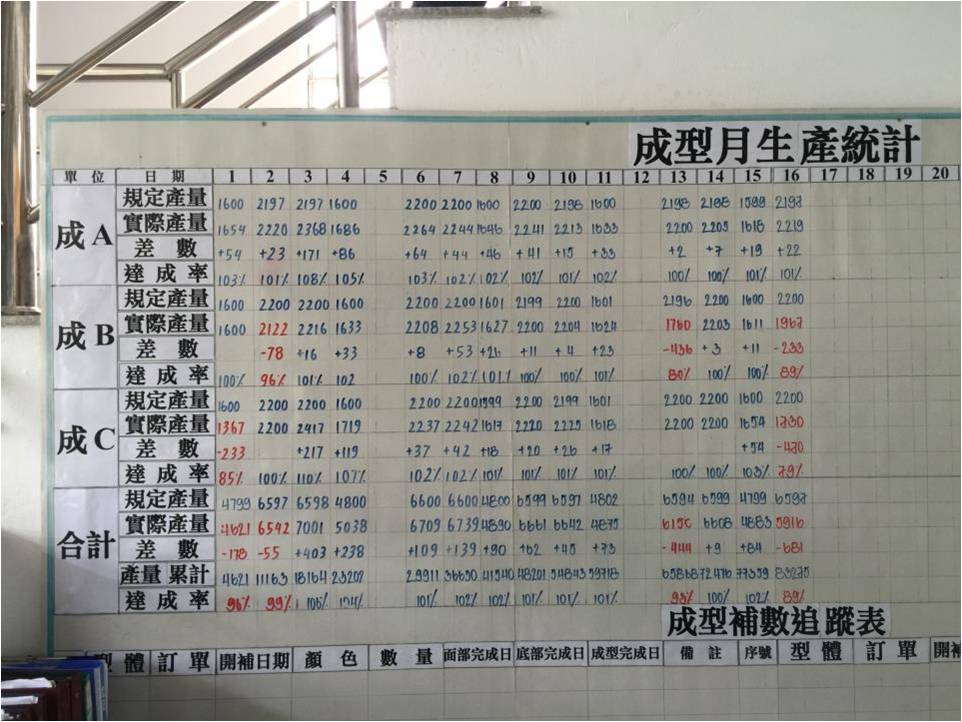 成型月生產統計
單位 日期 1 2 3 4 5 6 7 8 9 10 11 12 13 14 15 16 17 18 19 20
成A
規定產量 1600 2197 2197 1600 2200 2200 1600 2200 2198 1600 2198 2198 1589 2197
實際產量 1654 2220 2368 1686 2264 2244 1646 2241 2213 1633 2200 2205 1618 2219
差數 +54 +23 +171 +86 +64 +44 +46 +41 +15 +33 +2 +7 +19 +22
達成率 103% 101% 108% 105% 103% 102% 102% 102% 101% 102% 100% 100% 101% 101%
成B
規定產量 1600 2200 2200 1600 2200 2200 1601 2199 2200 1601 2196 2200 1600 2200
實際產量 1600 2122 2216 1633 2208 2253 1627 2200 2204 1624 1760 2203 1611 1967
差數 -78 +16 +33 +8 +53 +26 +11 +4 +23 -436 +3 +11 -233
達成率 100% 96% 101% 102 100% 102% 101% 100% 100% 101% 80% 100% 100% 89%
成C
規定產量 1600 2200 2200 1600 2200 2200 1599 2200 2199 1601 2200 2200 1600 2200
實際產量 1367 2200 2417 1719 2237 2242 1617 2220 2225 1618 2200 2200 1654 1730
差數 -233 +217 +119 +37 +42 +18 +20 +26 +17 +54 -470
達成率 85% 100% 110% 107% 102% 102% 101% 101% 101% 101% 100% 100% 103% 79%
合計
規定產量 4799 6597 6598 4800 6600 6600 4800 6599 6597 4802 6594 6599 4799 6597
實際產量 4621 6542 7001 5038 6709 6739 4890 6661 6642 4875 6150 6608 4883 5916
差數 -178 -55 +403 +238 +109 +139 +90 +62 +45 +73 -444 +9 +84 -681
產量累計 4621 11163 18164 23202 29911 36650 41540 48201 54843 59718 65868 72476 77359 83275
達成率 96% 99% 106% 104% 101% 102% 102% 101% 101% 101% 93% 100% 102% 89%
成型補數追蹤表
型體 訂單 開補日期 顏色 數量 面部完成日 底部完成日 成型完成日 備註 序號 型體 訂單 開補